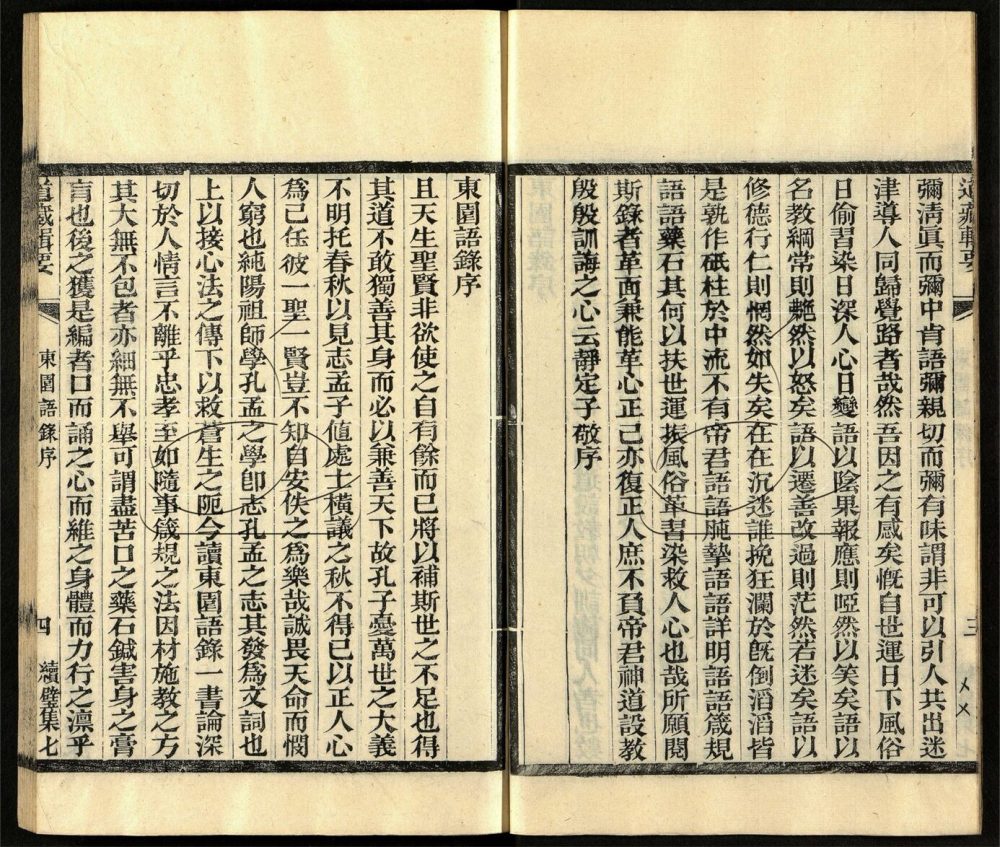 道藏輯要
三
彌淸眞而彌中肯語彌親切而彌有味謂非可以引人共出迷
津導人同歸覺路者哉然吾因之有感矣慨自世運日下風俗
日偷習染日深人心日變語以陰果報應則啞然以笑矣語以
名教綱常則艴然以怒矣語以遷善改過則茫然若迷矣語以
修德行仁則惘然如失矣在在沉迷誰挽狂瀾於旣倒滔滔皆
是孰作砥柱於中流不有帝君語語肫摯語語詳明語語箴規
語語藥石其何以扶世運振風俗革習染救人心也哉所願閱
斯錄者革面兼能革心正己亦復正人庶不負帝君神道設教
殷殷訓誨之心云靜定子敬序
東園語錄序
且天生聖賢非欲使之自有餘而已將以補斯世之不足也得
其道不敢獨善其身而必以兼善天下故孔子憂萬世之大義
不明托春秋以見志孟子値處士橫議之秋不得已以正人心
爲己任彼一聖一賢豈不知自安佚之爲樂哉誠畏天命而憫
人窮也純陽祖師學孔孟之學卽志孔孟之志其發爲文詞也
上以接心法之傳下以救蒼生之阨今讀東園語錄一書論深
切於人情言不離乎忠孝至如隨事箴規之法因材施教之方
其大無不包者亦細無不舉可謂盡苦口之藥石鍼害身之膏
肓也後之獲是編者口而誦之心而維之身體而力行之凛乎
道藏輯要
東園語錄序
四
續璧集七